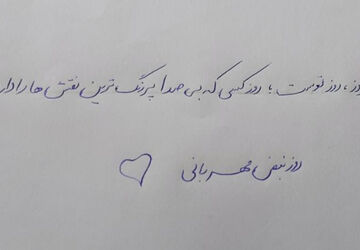 روز، روز توست؛ روز کسی که بی صدا پررنگ ترین نقش ها را دارد
روز نبض مهربانی